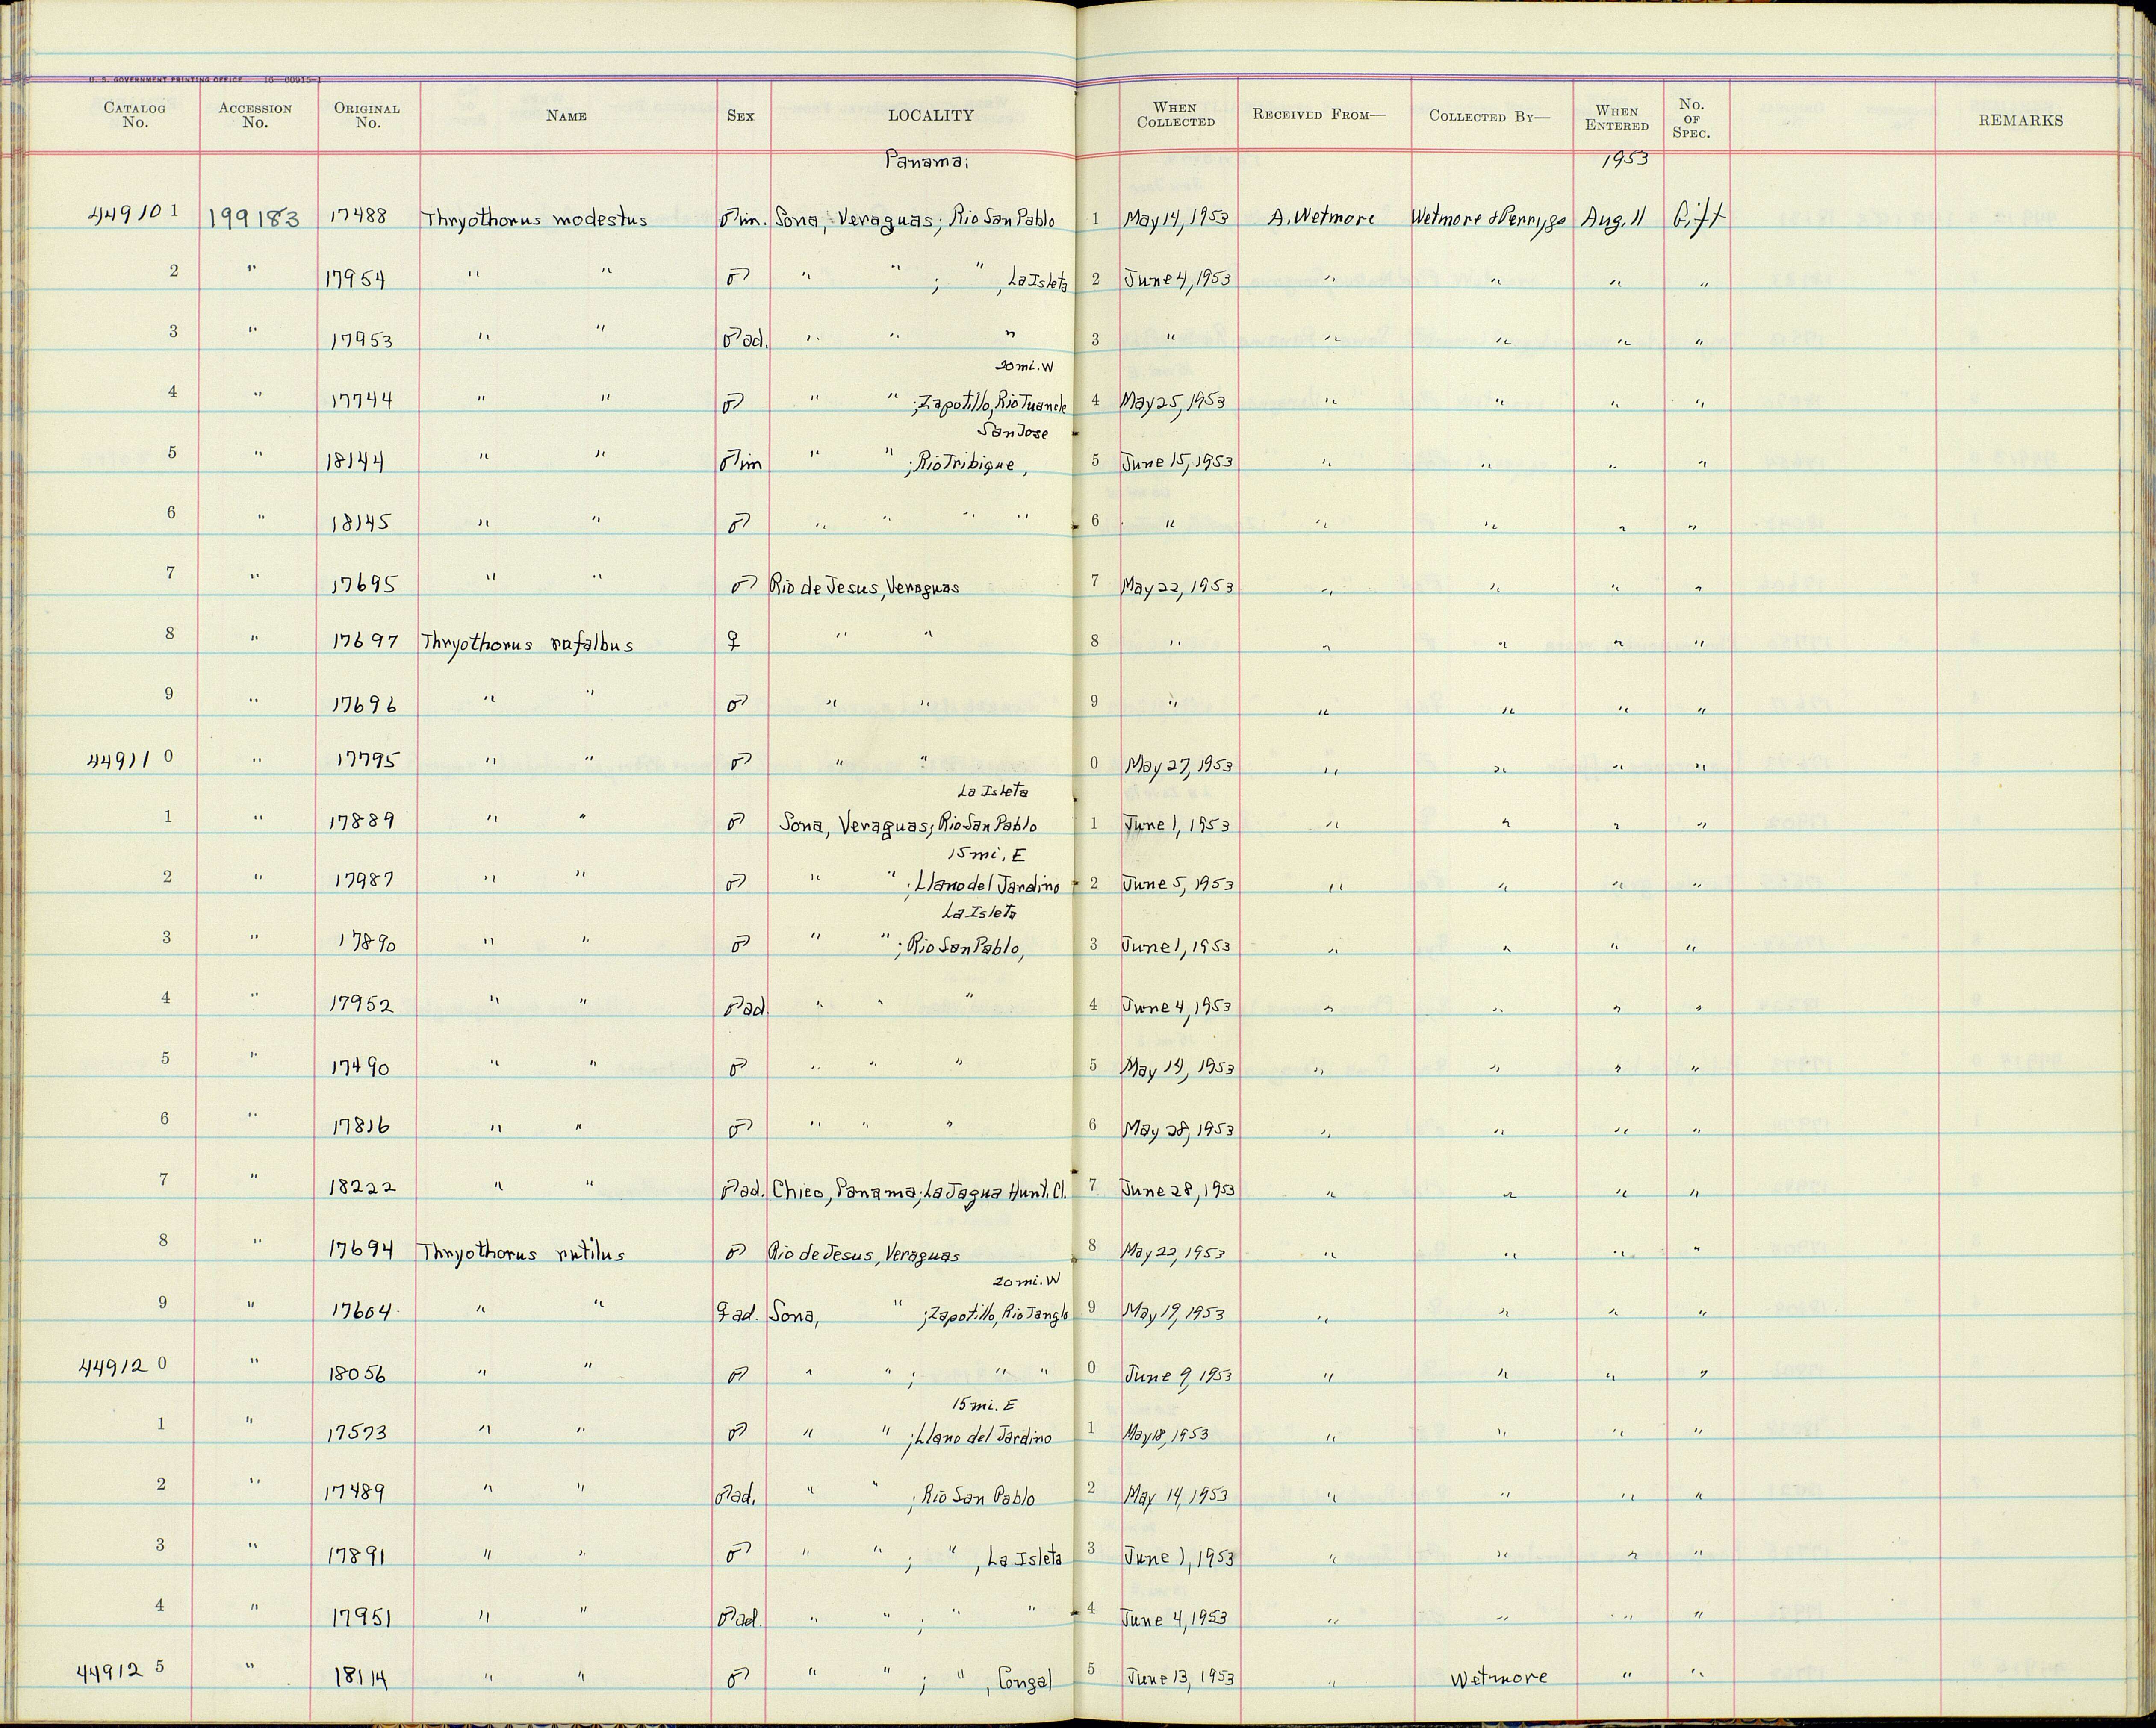 U. S. GOVERNMENT PRINTING OFFICE 16—60915-1
CATALOG No. ACCESSION No. ORIGINAL No. NAME SEX LOCALITY WHEN COLLECTED RECEIVED FROM— COLLECTED BY— WHEN ENTERED No. OF SPEC. REMARKS
Panama; 1953
449101 199183 17488 Thryothorus modestus ♂ im. Sona, Veraguas; Rio San Pablo 1 May 14, 1953 A. Wetmore Wetmore & Aug. 11 Gift
2 " 17954 " " ♂ " " ; " , La Isleta 2 June 4, 1953 " " " "
3 " 17953 " " ♂ ad. " " " 3 " " " " "
20 mi. W
4 " 17744 " " ♂ " " ; Zapotillo, Rio 4 May 25, 1953 " " " "
San Jose
5 " 18144 " " ♂ im " " ; Rio Tribique, 5 June 15, 1953 " " " "
6 " 18145 " " ♂ " " " " 6 " " " " "
7 " 17695 " " ♂ Rio de Jesus, Veraguas 7 May 22, 1953 " " " "
8 " 17697 Thryothorus rufalbus ♀ " " 8 " " " " "
9 " 17696 " " ♂ " " 9 " " " " "
449110 " 17795 " " ♂ " " 0 May 27, 1953 " " " "
La Isleta
1 " 17889 " " ♂ Sona, Veraguas; Rio San Pablo 1 June 1, 1953 " " " "
15 mi. E
2 " 17987 " " ♂ " " ; Llano del Jardino 2 June 5, 1953 " " " "
La Isleta
3 " 17890 " " ♂ " " ; Rio San Pablo, 3 June 1, 1953 " " " "
4 " 17952 " " ♂ ad " " " 4 June 4, 1953 " " " "
5 " 17490 " " ♂ " " " 5 May 14, 1953 " " " "
6 " 17816 " " ♂ " " " 6 May 28, 1953 " " " "
7 " 18222 " " ♂ ad. Chico, Panama; La Jagua Hunt. Cl. 7 June 28, 1953 " " " "
8 " 17694 Thryothorus rutilus ♂ Rio de Jesus, Veraguas 8 May 22, 1953 " " " "
20 mi. W
9 " 17604 " " ♀ ad. Sona, " ; Zapotillo, Rio 9 May 19, 1953 " " " "
449120 " 18056 " " ♂ " " ; " " 0 June 9, 1953 " " " "
15 mi. E
1 " 17573 " " ♂ " " ; Llano del Jardino 1 May 18, 1953 " " " "
2 " 17489 " " ♂ ad. " " ; Rio San Pablo 2 May 14, 1953 " " " "
3 " 17891 " " ♂ " " ; " , La Isleta 3 June 1, 1953 " " " "
4 " 17951 " " ♂ ad. " " ; " " 4 June 4, 1953 " " " "
449125 " 18114 " " ♂ " " ; " , Congal 5 June 13, 1953 " Wetmore " "